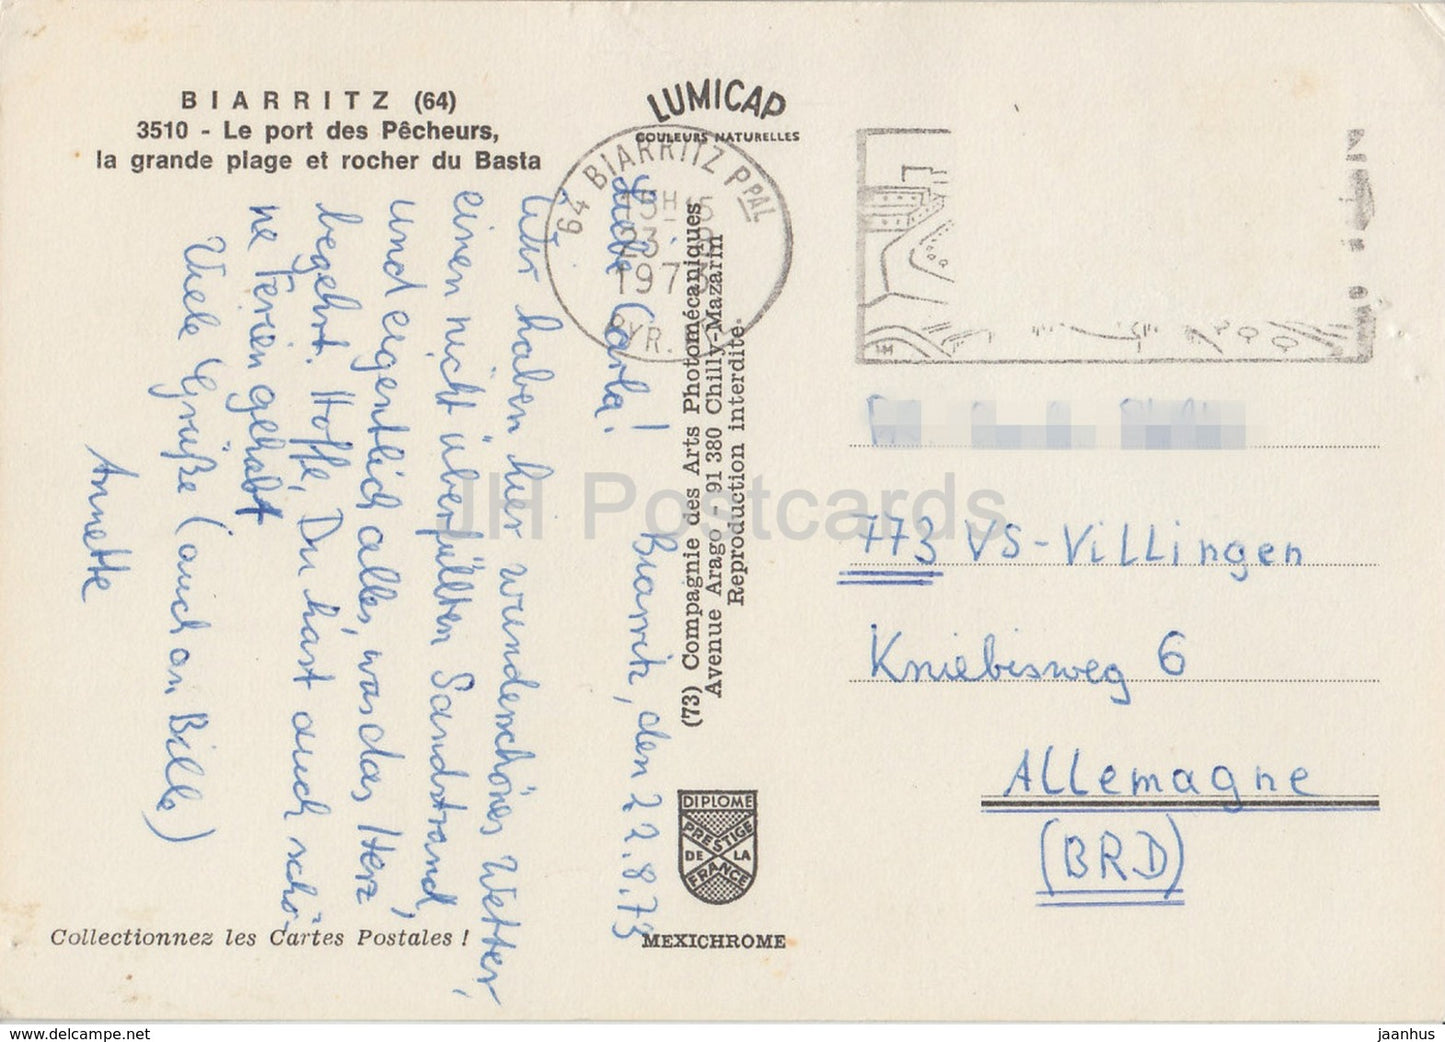 BIARRITZ (64)
3510 - Le port des Pêcheurs,
la grande plage et rocher du Basta
LUMICAP
COULEURS NATURELLES
64 BIARRITZ PPAL
1973
PYR.
Biarritz, den 22.8.73
Liebe Carla!
Wir haben hier wunderschönes Wetter,
einen nicht überfüllten Sandstrand,
und eigentlich alles, was das Herz
begehrt. Hoffe, Du hast auch schö-
ne Ferien gehabt
Viele Grüße (auch an Bille)
Annette
(73) Compagnie des Arts Photomécaniques
Avenue Arago - 91 380 Chilly-Mazarin
Reproduction interdite.
773 VS-Villingen
Kniebisweg 6
Allemagne
(BRD)
DIPLOME
PRESTIGE
DE LA
FRANCE
MEXICHROME
Collectionnez les Cartes Postales !
JH Postcards
https://www.delcampe.net
jaanhus